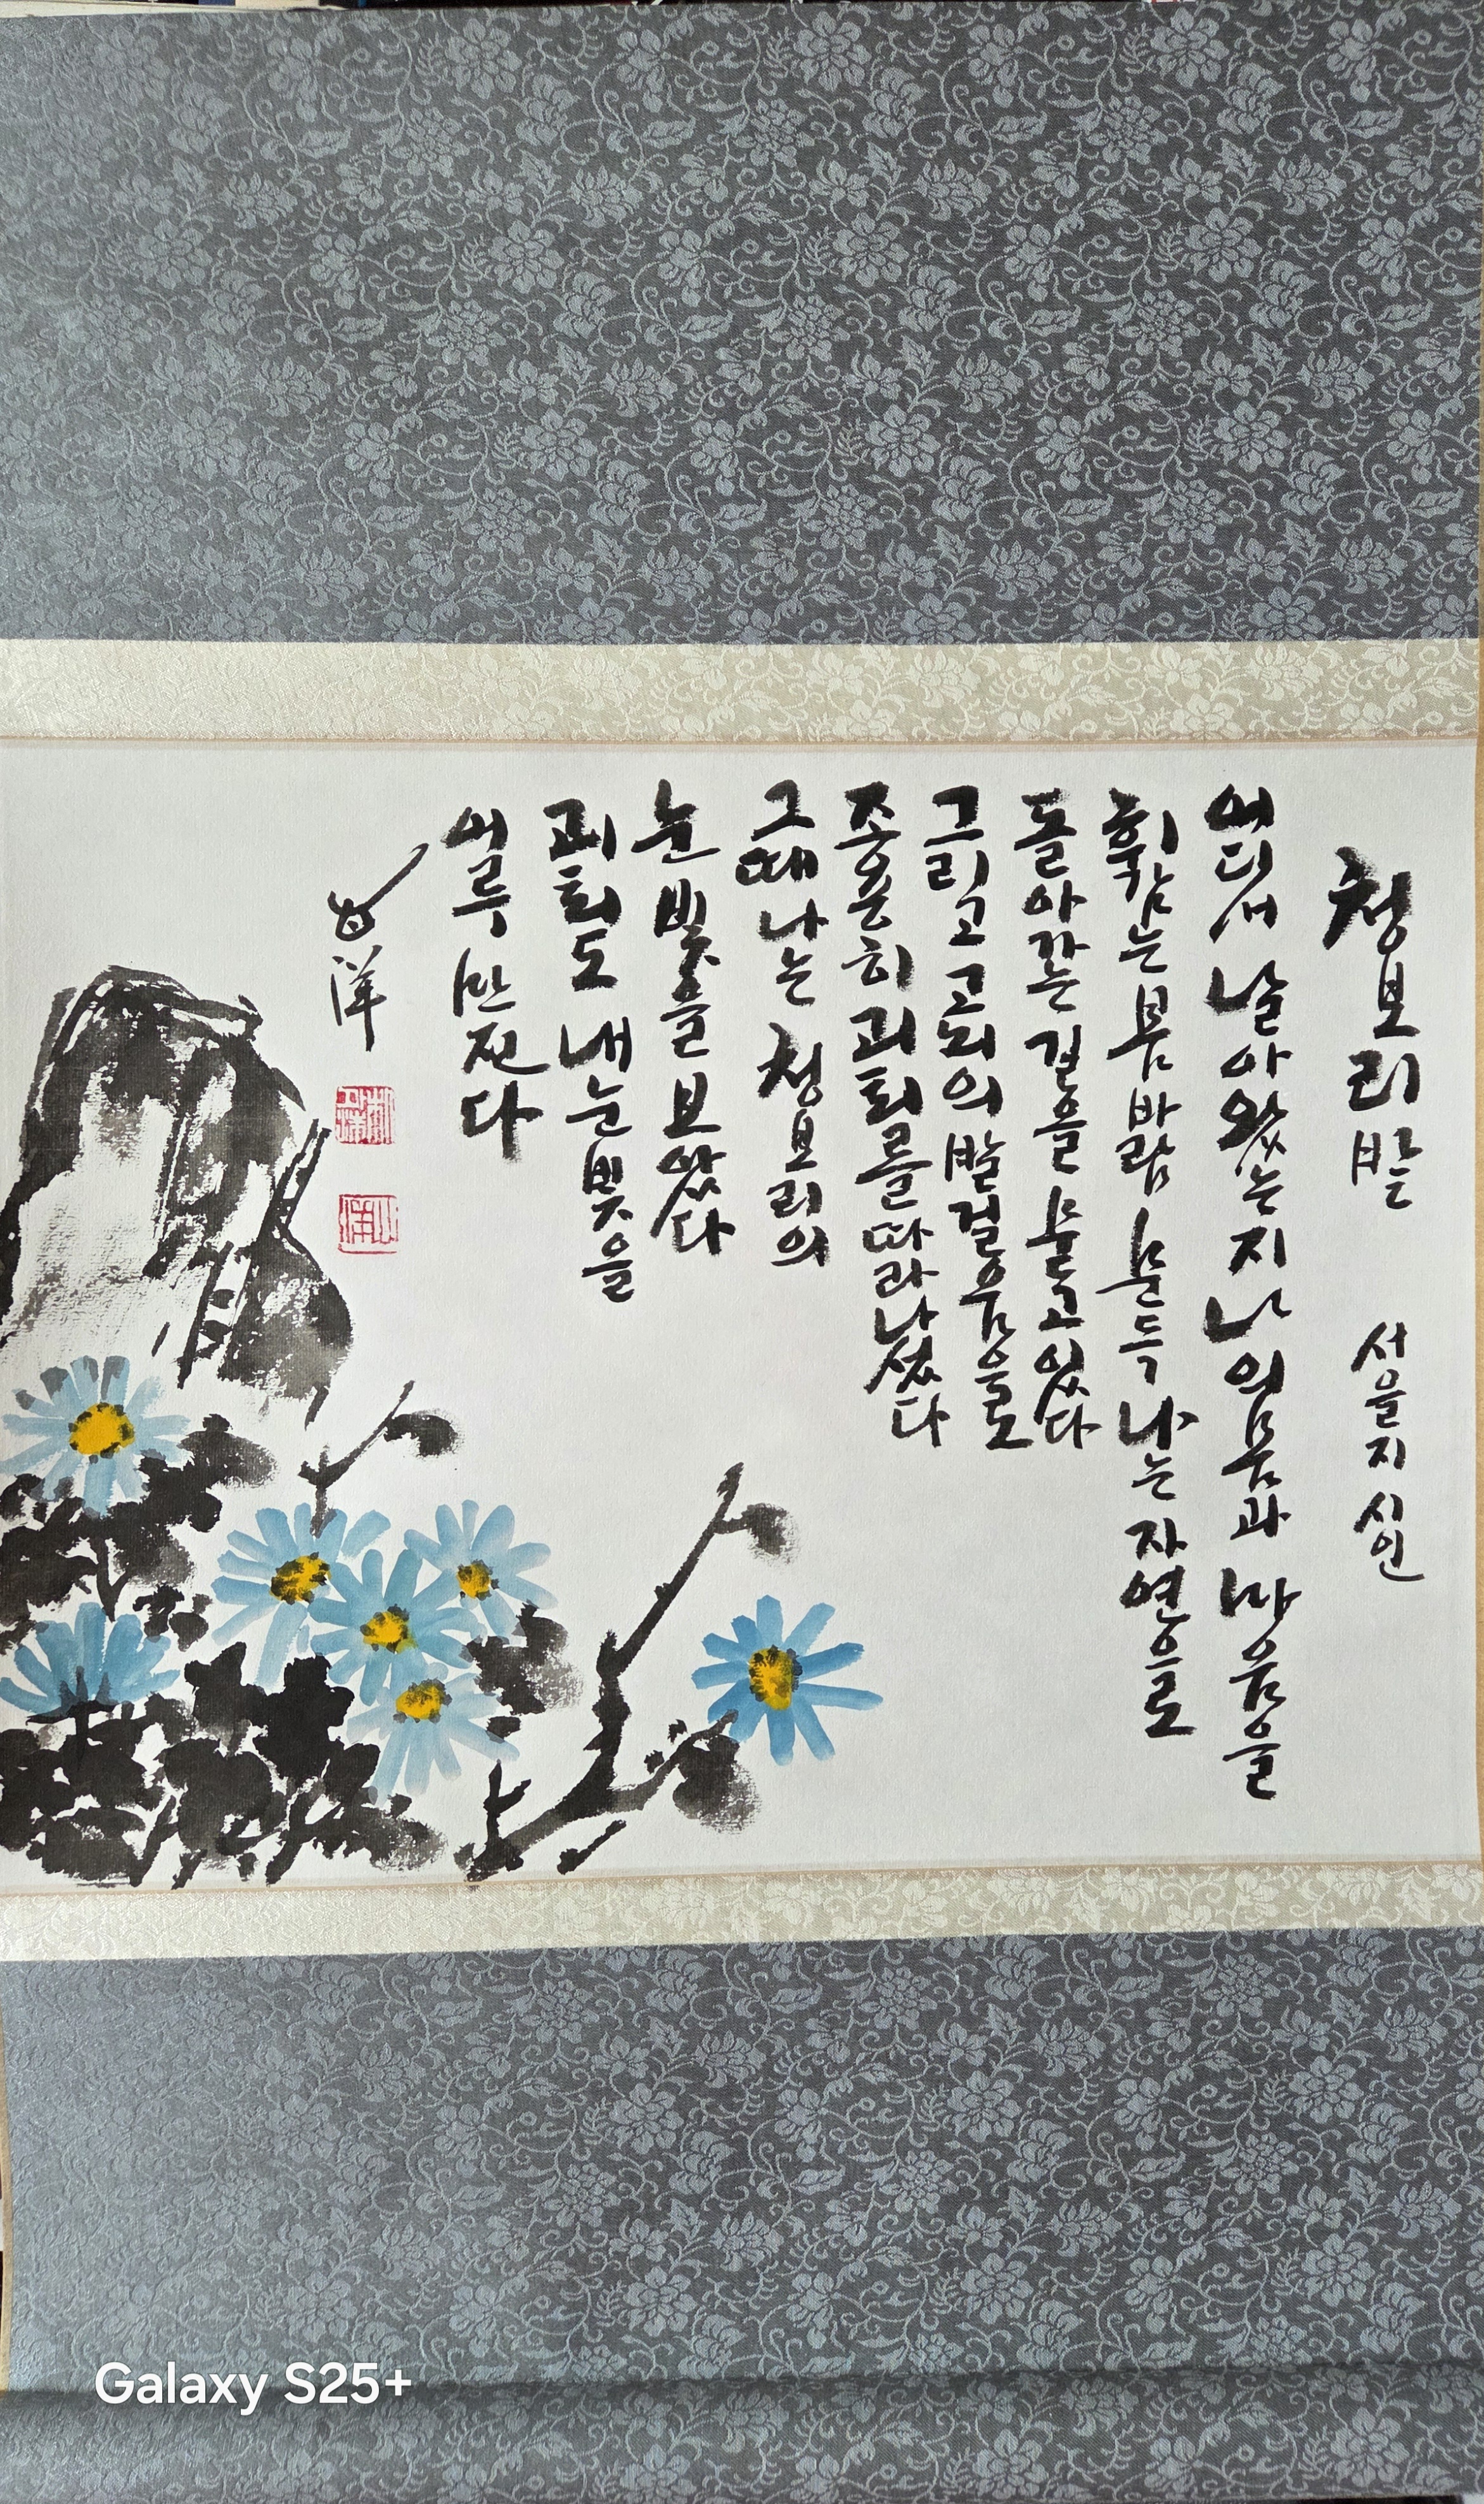 청보리밭 서을지 시인
어디서 날아왔는지 나의 몸과 마음을
휘감는 봄바람 문득 나는 자연으로
돌아가는 길을 묻고 있다
그리고 고뇌의 발걸음을로
조용히 괴퇴를 따라 나섰다
그때 나는 청보리의
눈빛을 보았다
괴퇴도 내 눈빛을
어루만진다
Galaxy S25+